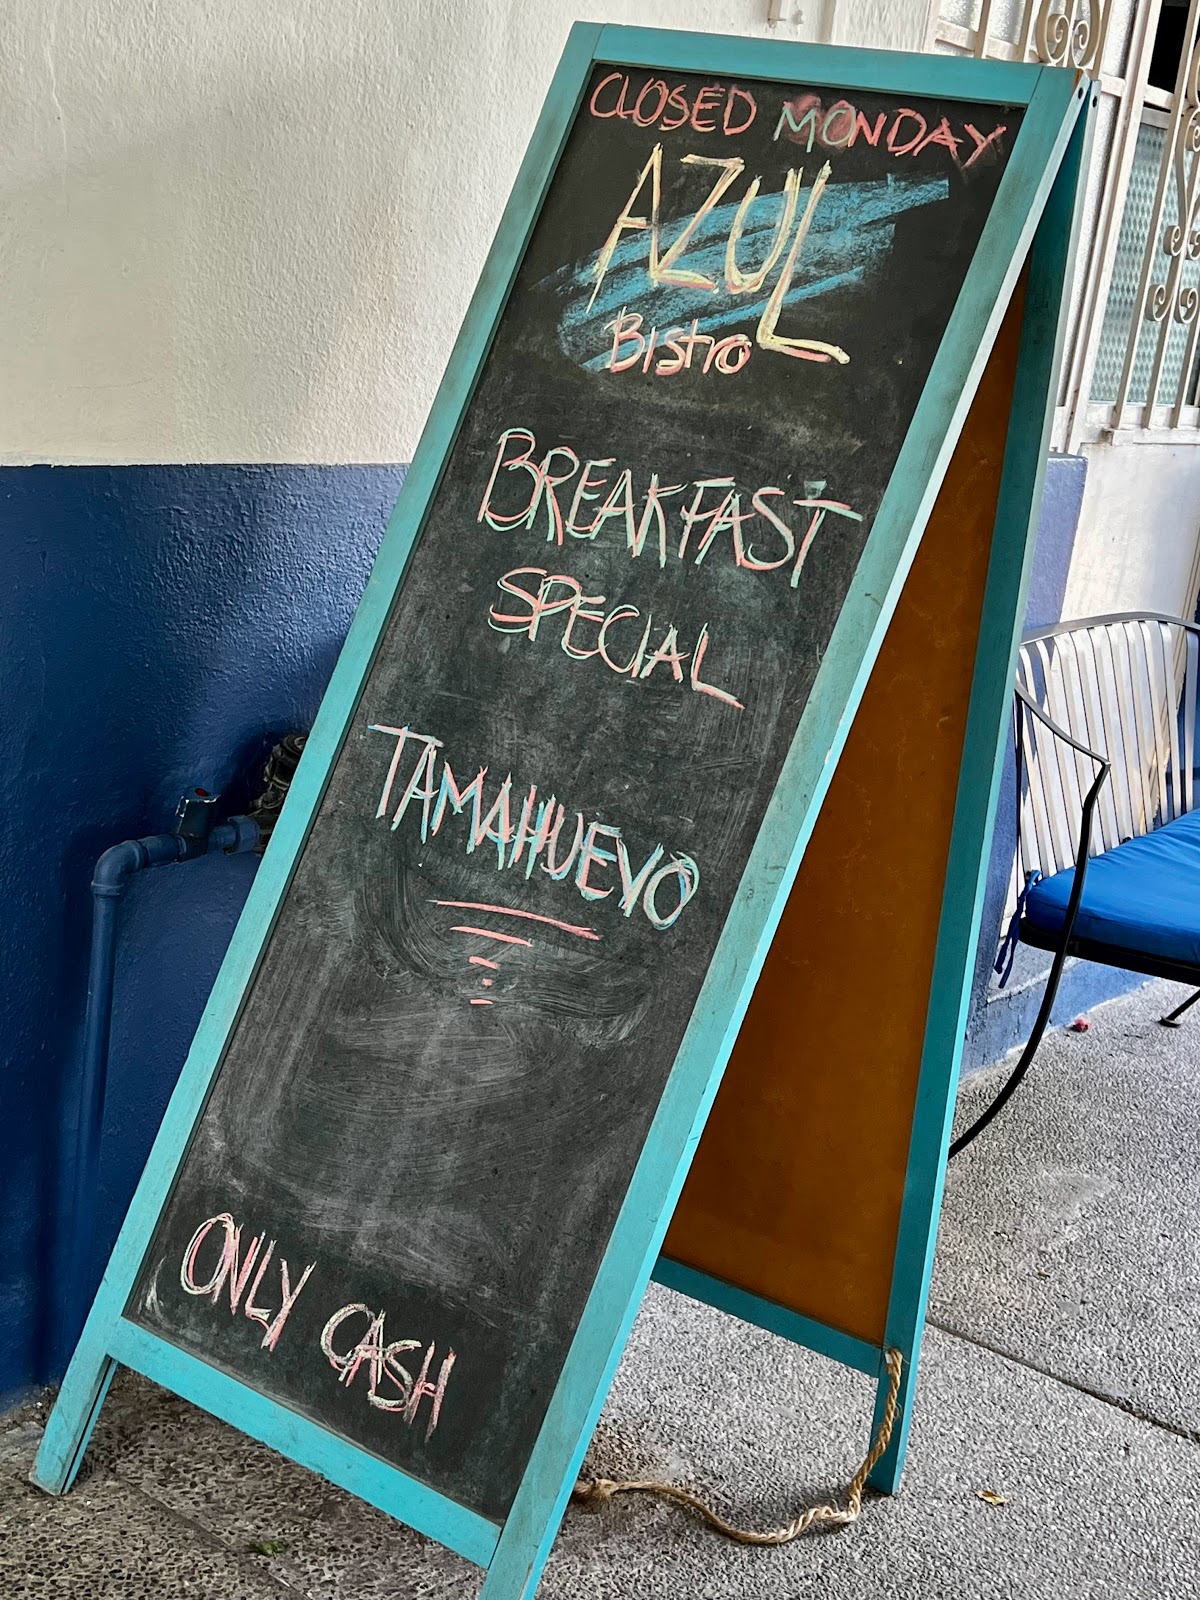 CLOSED MONDAY
AZUL
Bistro
BREAKFAST
SPECIAL
TAMAHUEVO
ONLY CASH